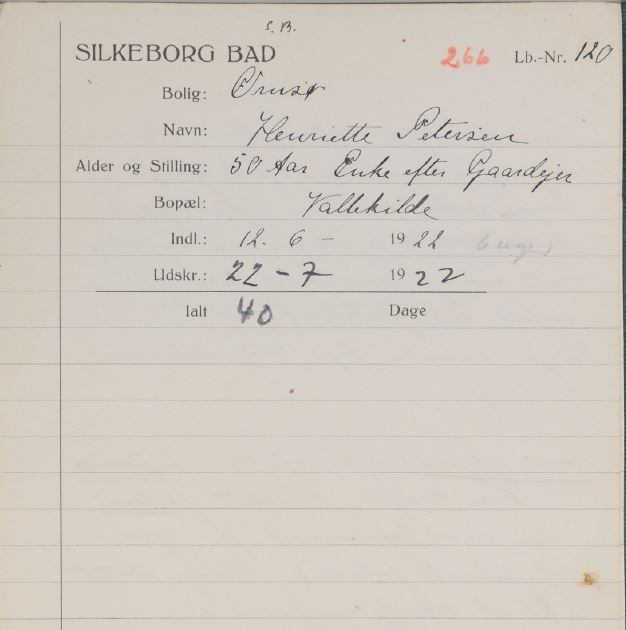 S. B.
SILKEBORG BAD 266 Lb.-Nr. 120
Bolig: Ørnsø
Navn: Henriette Petersen
Alder og Stilling: 50 Aar Enke efter Gaardejer
Bopæl: Vallekilde
Indl.: 12. 6 - 1922 6 uger
Udskr.: 22 - 7 1922
Ialt 40 Dage